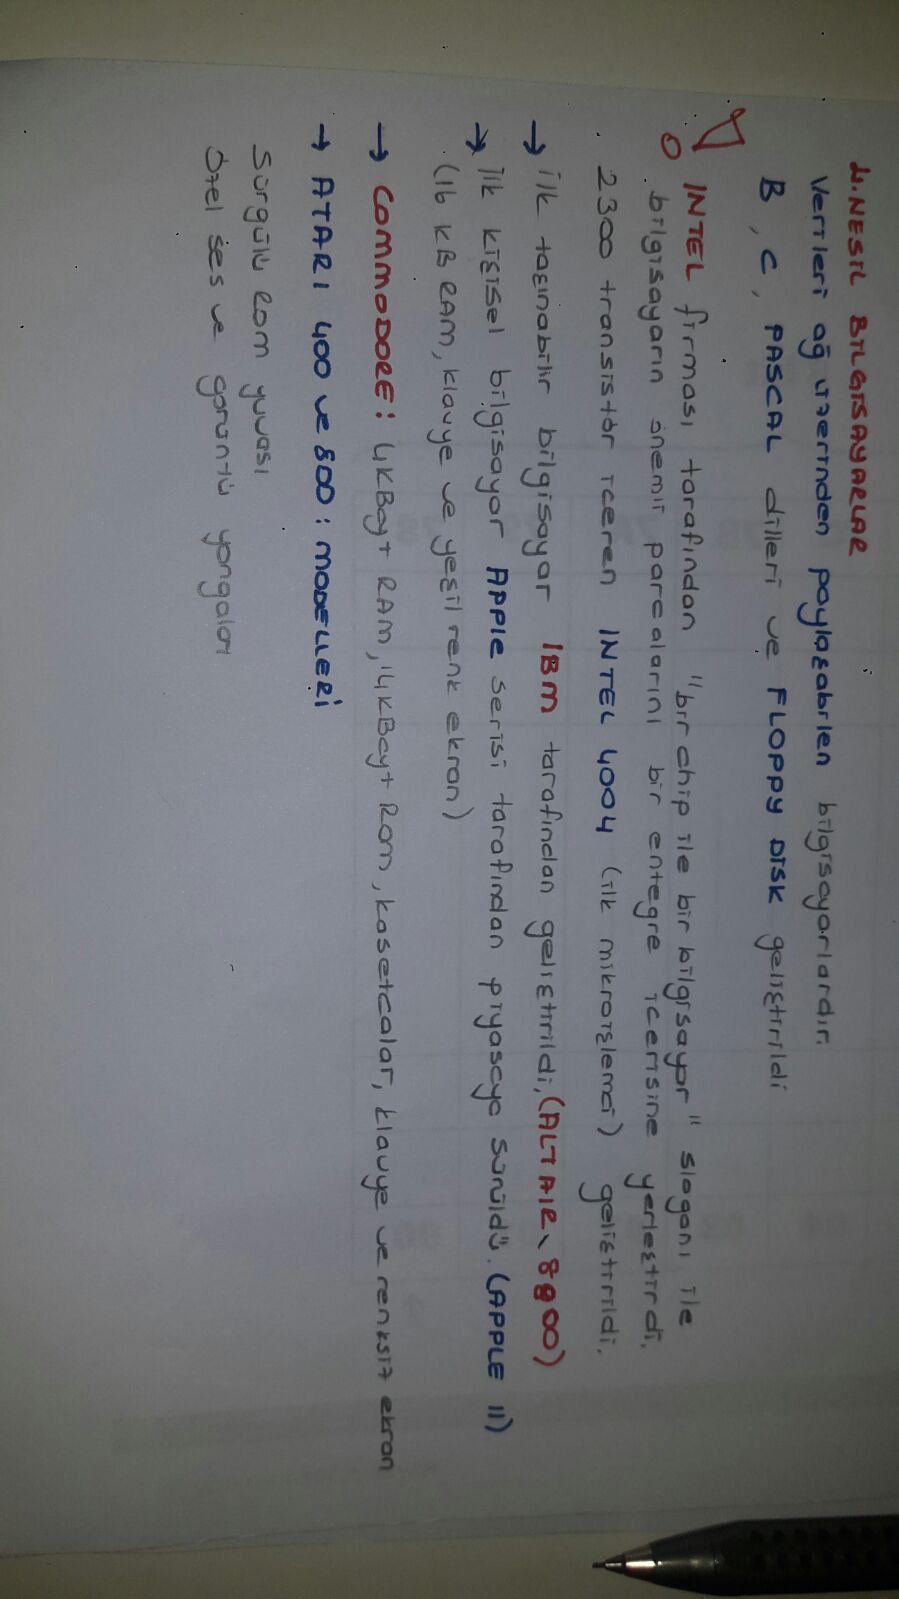 4. NESİL BİLGİSAYARLAR
Verileri ağ üzerinden paylaşabilen bilgisayarlardır.
B, C, PASCAL dilleri ve FLOPPY DİSK geliştirildi
INTEL firması tarafından "bir chip ile bir bilgisayar" sloganı ile
bilgisayarın önemli parcalarını bir entegre icerisine yerleştirdi.
2300 transistör iceren INTEL 4004 (ilk mikroişlemci) geliştirildi.
→ İlk taşınabilir bilgisayar IBM tarafından geliştirildi. (ALTAIR, 8800)
→ İlk kişisel bilgisayar APPle serisi tarafından piyasaya sürüldü. (APPLE II)
(16 KB RAM, klavye ve yeşil renk ekran)
→ COMMODORE: 4KBayt RAM, 14KBayt Rom, kasetcalar, klavye ve renksiz ekran
→ ATARI 400 ve 800: MODELLERİ
Sürgülü Rom yuvası
Özel ses ve görüntü yongaları